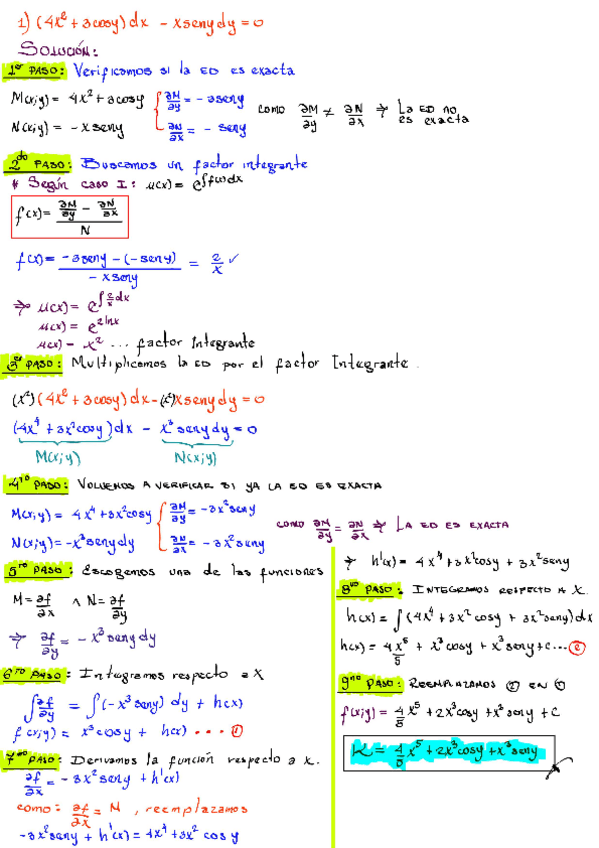 1) (4x² + 3cosy)dx - xsenydy = 0
SOLUCIÓN:
1er PASO: Verificamos si la ED es exacta
M(x;y) = 4x² + 3cosy { ∂M/∂y = -3seny
N(x;y) = -xseny { ∂N/∂x = -seny
como ∂M/∂y ≠ ∂N/∂x ⇒ La ED no es exacta
2do PASO: Buscamos un factor integrante
* Según caso I: u(x) = e^∫f(x)dx
f(x) = (∂M/∂y - ∂N/∂x)/N
f(x) = (-3seny - (-seny))/(-xseny) = 2/x ✓
⇒ u(x) = e^∫2/x dx
u(x) = e^2lnx
u(x) = x² ... factor Integrante
3er PASO: Multiplicamos la ED por el factor Integrante.
(x²)(4x² + 3cosy)dx - (x²)xsenydy = 0
(4x⁴ + 3x²cosy)dx - x³senydy = 0
M(x;y) N(x;y)
4to PASO: VOLVEMOS A VERIFICAR SI YA LA ED ES EXACTA
M(x;y) = 4x⁴ + 3x²cosy { ∂M/∂y = -3x²seny
N(x;y) = -x³senydy { ∂N/∂x = -3x²seny
COMO ∂M/∂y = ∂N/∂x ⇒ LA ED ES EXACTA
5to PASO: Escogemos una de las funciones
M = ∂f/∂x ∧ N = ∂f/∂y
⇒ ∂f/∂y = -x³senydy
6to PASO: Integramos respecto a X
∫∂f/∂y = ∫(-x³seny)dy + h(x)
f(x;y) = x³cosy + h(x) ... ①
7mo PASO: Derivamos la función respecto a x.
∂f/∂x = -3x²seny + h'(x)
como: ∂f/∂x = M, reemplazamos
-3x²seny + h'(x) = 4x⁴ + 3x² cosy
⇒ h'(x) = 4x⁴ + 3x²cosy + 3x²seny
8vo PASO: INTEGRAMOS RESPECTO A X.
h(x) = ∫(4x⁴ + 3x²cosy + 3x²seny)dx
h(x) = 4x⁵/5 + x³cosy + x³seny + C... ②
9no PASO: REEMPLAZAMOS ② EN ①
f(x;y) = 4/5 x⁵ + 2x³cosy + x³seny + C
K = 4/5 x⁵ + 2x³cosy + x³seny